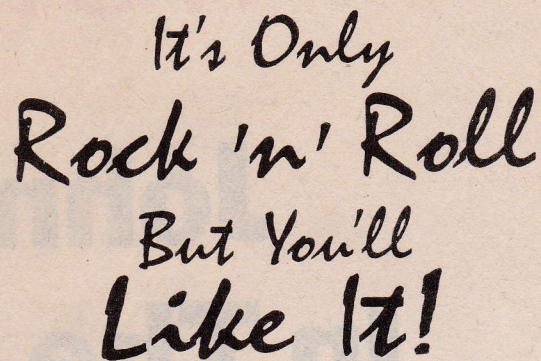 It's Only
Rock 'n' Roll
But You'll
Like It!